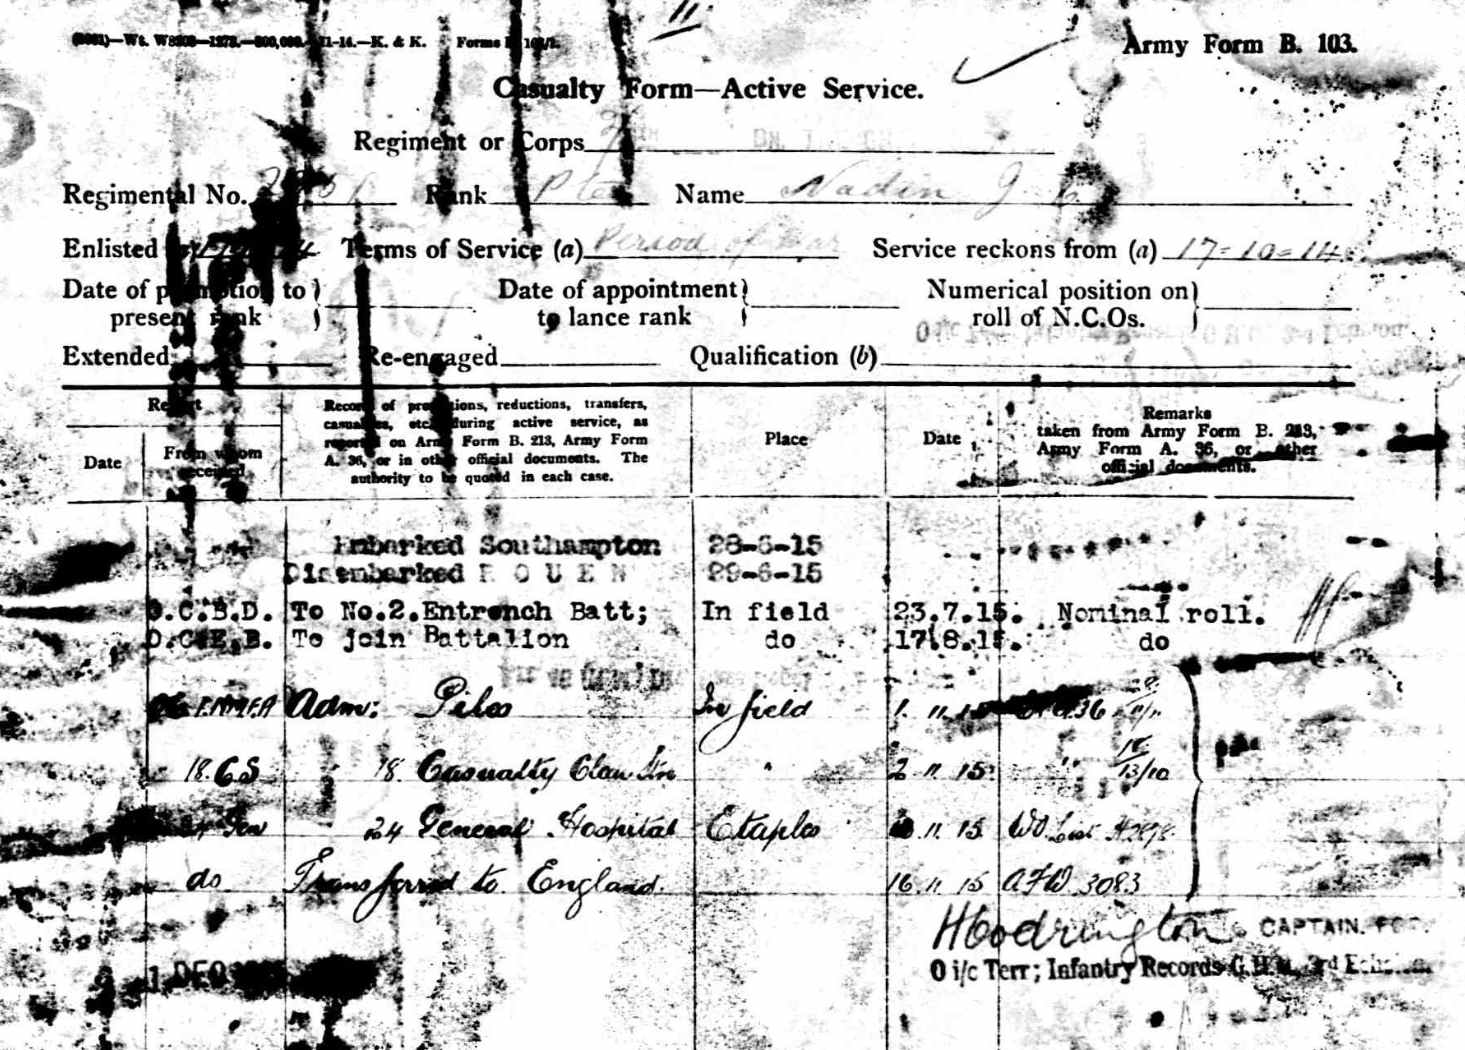 Army Form B. 103.
Casualty Form—Active Service.
Regiment or Corps
Regimental No. Rank Pte Name Nadin J
Enlisted Terms of Service (a) Period of War Service reckons from (a) 17=10=14
Date of promotion to present rank Date of appointment to lance rank Numerical position on roll of N.C.Os.
Extended Re-engaged Qualification (b)
Report
Date
From whom received
Record of promotions, reductions, transfers,
casualties, etc., during active service, as
reported on Army Form B. 213, Army Form
A. 36, or in other official documents. The
authority to be quoted in each case.
Place
Date
Remarks
taken from Army Form B. 213,
Army Form A. 36, or other
official documents.
Embarked Southampton 28-6-15
Disembarked ROUEN 29-6-15
O.C.B.D. To No.2.Entrench Batt; In field 23.7.15. Nominal roll.
O.C.E.B. To join Battalion do 17.8.15. do
Adm: Piles In field 1. 11. 15 A36
18. CS 18. Casualty Clear Stn " 2. 11. 15 " 13/10
24 General Hospital Etaples 11. 15 WO List
do Transferred to England. 16. 11. 15 AFW 3083
HCodrington CAPTAIN. FOR.
O i/c Terr; Infantry Records G.H.Q., 3rd Echelon.
1 DEC